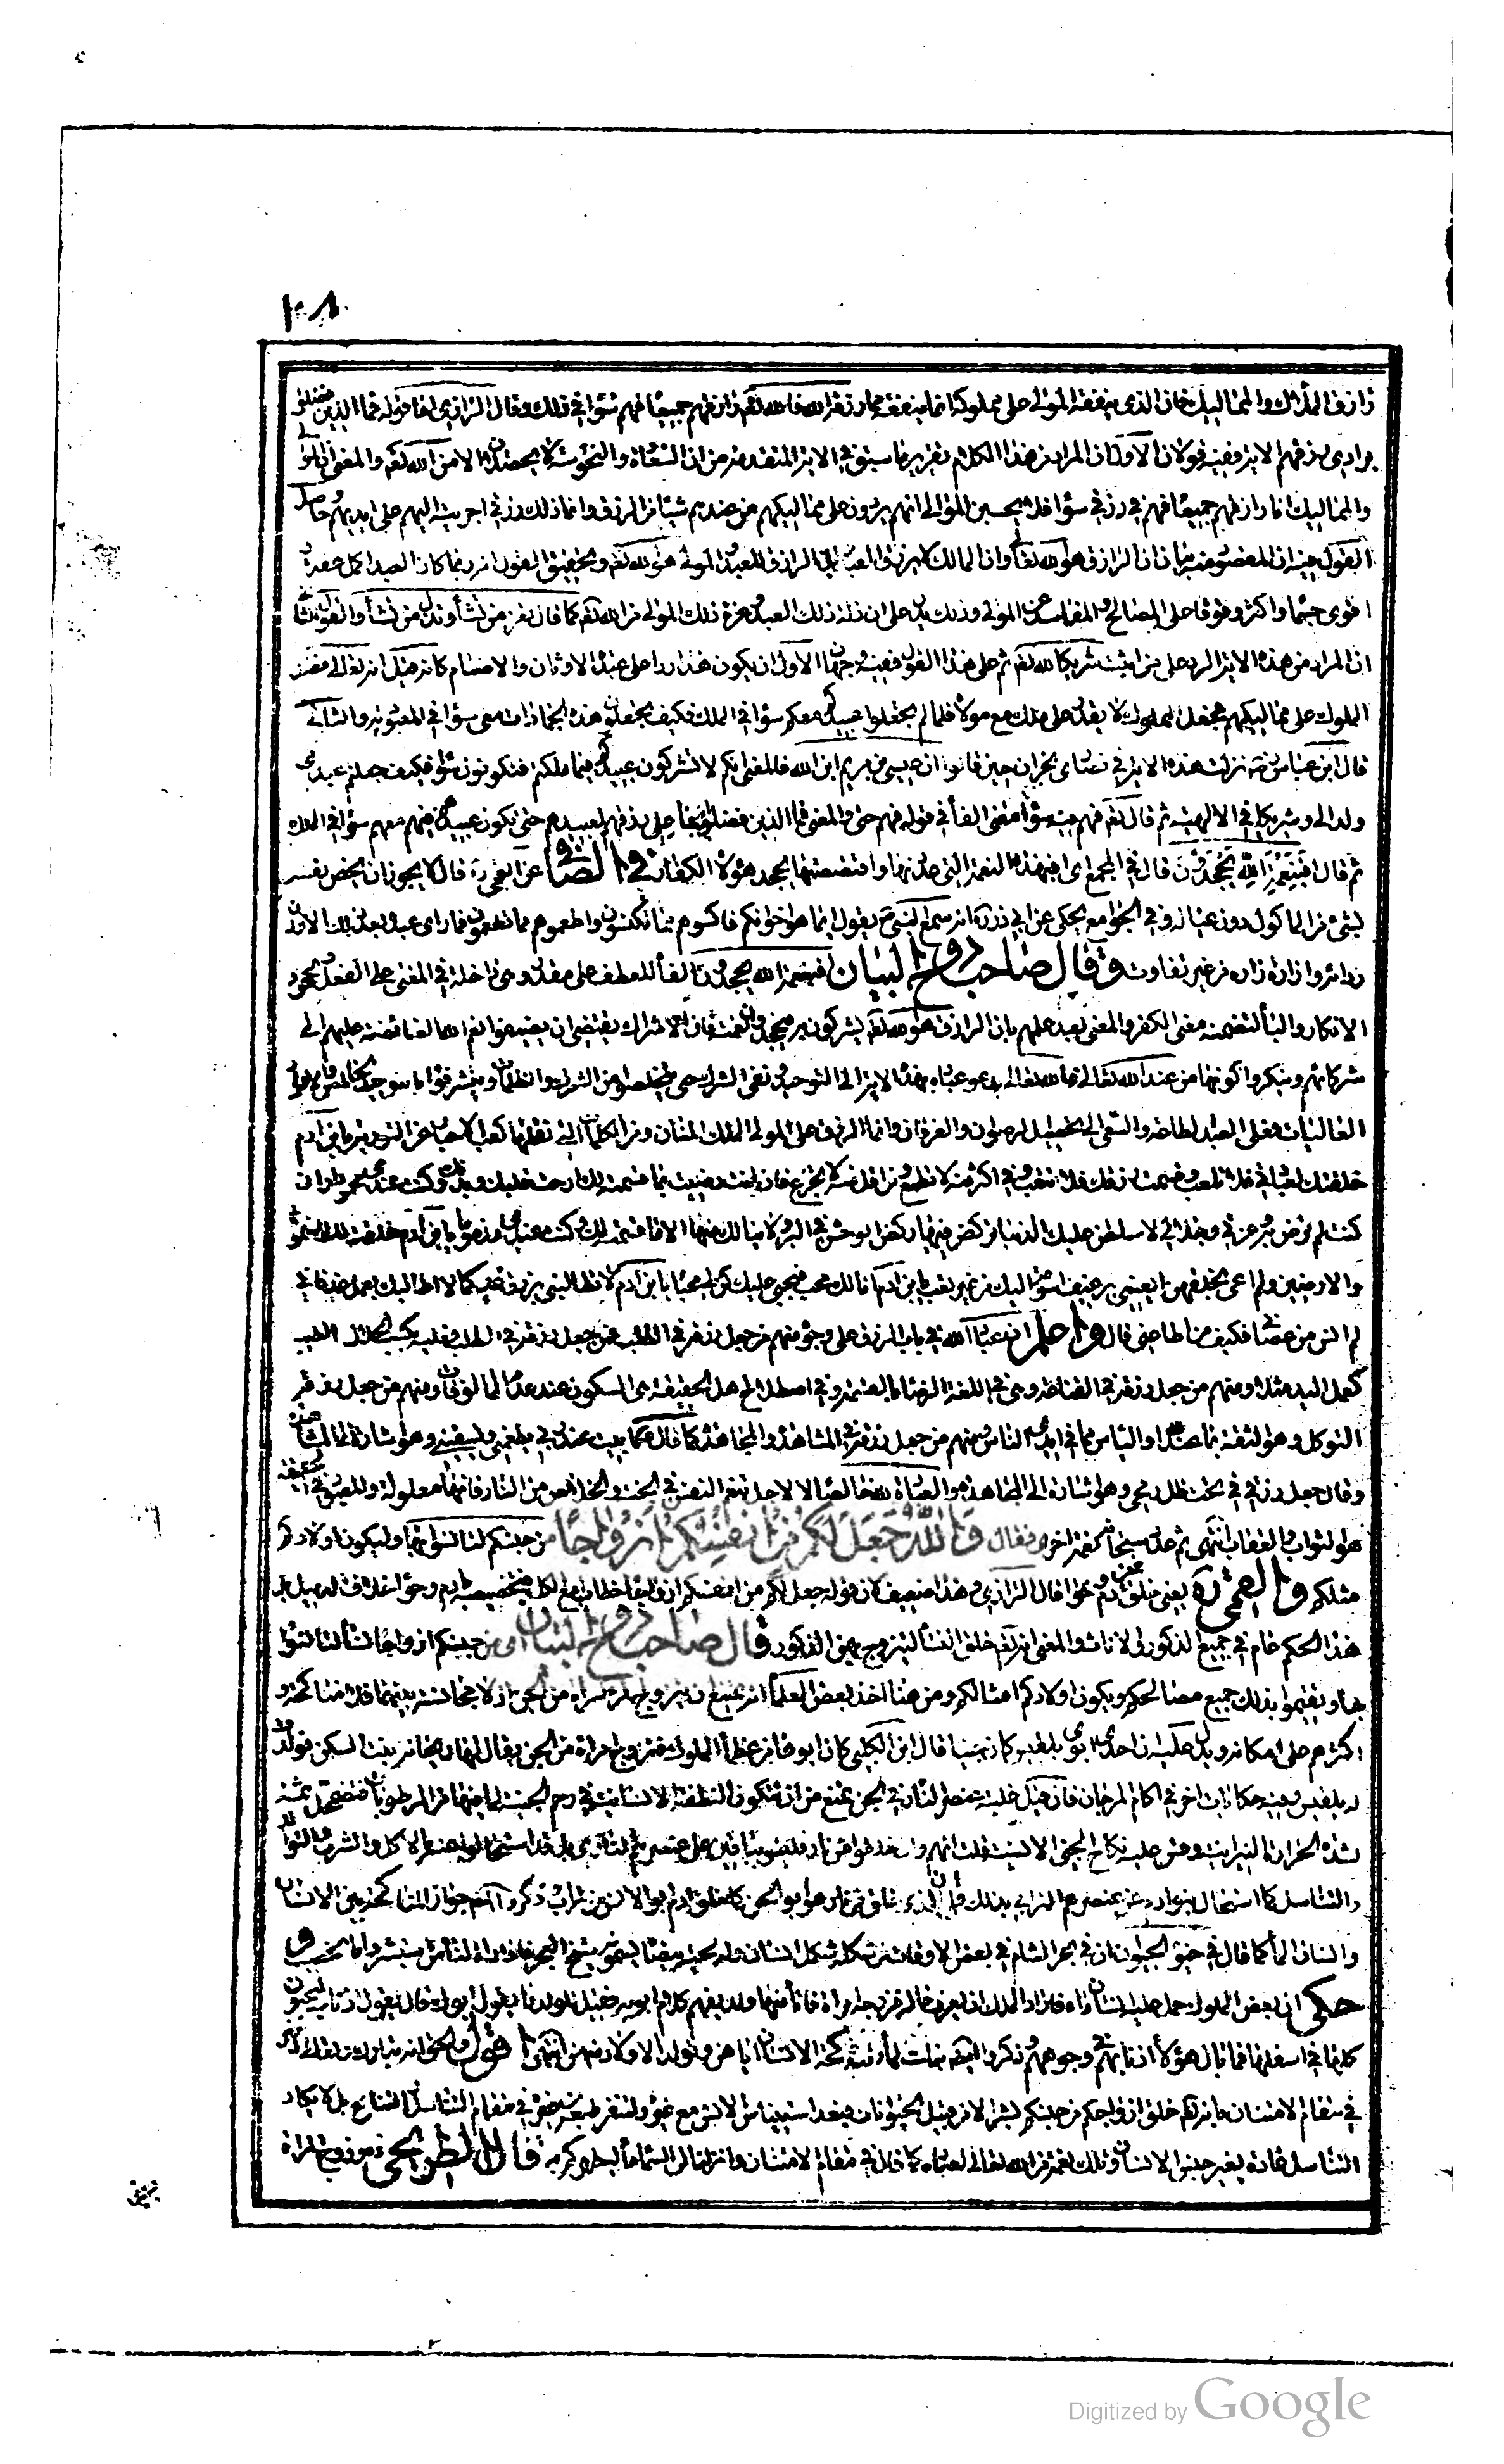 ١٠٨
رازق الملاك والمماليك فان الذى ينفقه الموالى على مملوكه انما ينفقه مما رزقه الله فالله تعم رازقهم جميعا فهم سواء في ذلك وقال الرازي اما قوله فما الذين فضلوا
برادى رزقهم الاية ففيه قولان الاول ان المراد من هذا الكلام تقرير ما سبق في الاية المتقدمة من ان السعادة والنحوسة لا يحصلان الا من الله تعم والمعنى ان الموالى
والمماليك انا رازقهم جميعا فهم في رزقى سواء فلا يحسبن الموالى انهم يردون على مماليكهم من عندهم شيئا من الرزق وانما ذلك رزقى اجريته اليهم على ايديهم وحاصل
القول فيه ان المقصود منه بيان ان الرازق هو الله تعالى وان المالك لا يرزق العبد بل الرازق للعبد والمولى هو الله تعم وتحقيق القول انه ربما كان العبد اكمل عقلا و
اقوى جسما واكثر وقوفا على المصالح والمفاسد من المولى وذلك يدل على ان ذلة ذلك العبد وعزة ذلك المولى من الله تعم كما قال تعز من تشاء وتذل من تشاء والقول الثانى
ان المراد من هذه الاية الرد على من اثبت شريكا لله تعم ثم على هذا القول ففيه وجهان الاول ان يكون هذا ردا على عبدة الاوثان والاصنام كانه قيل انه تعالى فضل
الملوك على مماليكهم فجعل المملوك لا يقدر على ملك مع مولاه فلما لم تجعلوا عبيدكم معكم سواء في الملك فكيف تجعلون هذه الجمادات معى سواء في المعبودية والثانى
قال ابن عباس رض نزلت هذه الاية في نصارى نجران حين قالوا ان عيسى بن مريم ابن الله فالمعنى انكم لا تشركون عبيدكم فيما ملكتم فتكونون سواء فكيف جعلتم عبدى
ولدا لى وشريكا في الالهية ثم قال تعم فهم فيه سواء معنى الفاء في قوله فهم حتى والمعنى فما الذين فضلوا بجاعلى رزقهم لعبيدهم حتى يكون عبيدهم فيهم معهم سواء في الملك
ثم قال افبنعمة الله يجحدون قال في المجمع اى افبهذه النعمة التى عددتها واقتصصتها يجحد هؤلاء الكفار في الصافى عن القمى ره قال لا يجوز ان يخص نفسه
بشئ من الماكول دون عياله وفي الجوامع يحكى عن ابى ذر ره انه سمع النبى ص يقول انما هم اخوانكم فاكسوهم مما تكتسون واطعموهم مما تطعمون فما راى عبده بعد ذلك الا و
ردائه وازاره ازاره من غير تفاوت وقال صاحب روح البيان افبنعمة الله يجحدون الفاء للعطف على مقدر وهى داخلة في المعنى على الفعل بجحود
الانكار والباء لتضمنه معنى الكفر والمعنى بعد علمهم بان الرازق هو الله تعم يشركون به فيجحدون نعمته فان الاشراك يقتضى ان يضيفوا نعم الله الفائضة عليهم الى
شركائهم وينكروا كونها من عند الله تعالى فالله تعالى يدعو عباده بهذه الاية الى التوحيد ونفى الشرك حتى يتخلصوا من الشرك والظلمات ويتشرفوا بالتوحيد الخالص والانوار
العاليات فعلى العبد الطاعة والسعى الى تحصيل الرضوان والعرفان وانما الرزق على المولى الملك المنان ومن الكلمات التى نقلها كعب الاحبار عن التورية يا ابن ادم
خلقتك لعبادتى فلا تلعب وقسمت رزقك فلا تتعب وفي اكثر منه لا تطمع ومن اقل منه لا تجزع فان رضيت بما قسمته لك ارحت قلبك وبدنك وكنت عندى محمودا وان
كنت لم ترض به فوعزتى وجلالى لاسلطن عليك الدنيا تركض فيها ركض الوحش في البر ولا ينالك منها الا ما قسمته لك وكنت عندى مذموما يا ابن ادم خلقت السموات
والارضين ولم اعى بخلقهن ايعيينى رغيف اسوقه اليك من غير تعب يا ابن ادم انا لك محب فبحقى عليك كن لى محبا يا ابن ادم لا تطالبنى برزق غد كما لا اطالبك بعمل غد فانى
لم انس من عصانى فكيف من اطاعنى قال واعلم ان عباد الله في باب الرزق على وجوه منهم من جعل رزقه في الطلب فمن جعل رزقه في الطلب فعليه بكسب الحلال الطيب
كعمل اليد مثلا ومنهم من جعل رزقه في القناعة وهى في اللغة الرضا بالقسمة وفي اصطلاح اهل الحقيقة هى السكون عند عدم المالوفات ومنهم من جعل رزقه في
التوكل وهو الثقة بما عند الله واليأس مما في ايدى الناس ومنهم من جعل رزقه في المشاهدة والمجاهدة كما قال ص ابيت عند ربى يطعمنى ويسقينى وهو اشارة الى المشاهدة
وقال جعل رزقى في تحت ظل رمحى وهو اشارة الى المجاهدة والعبادة لله خالصا لا لاجل تنعم النفس في الجنة والخلاص من النار فانها معلولة والمعبود في الحقيقة
هو الثواب والعقاب انتهى ثم عد سبحانه نعمة اخرى فقال وَاللهُ جَعَلَ لَكُمْ مِنْ اَنْفُسِكُمْ اَزْوَاجًا من جنسكم لتانسوا بها وليكون اولادكم
مثلكم والقمى ره يعنى خلق حوا من ادم قال الرازي وهذا ضعيف لان قوله جعل لكم من انفسكم ازواجا خطاب مع الكل فتخصيصه بادم وحوا خلاف الدليل بل
هذا الحكم عام في جميع الذكور والاناث والمعنى انه تعم خلق النساء ليتزوج بهن الذكور وقال صاحب روح البيان اى من جنسكم ازواجا نساء لتانسوا
بها وتقيموا بذلك جميع مصالحكم ويكون اولادكم امثالكم ومن هنا اخذ بعض العلماء انه يمتنع ان يتزوج المرء امراة من الجن اذ لا مجانسة بينهما فلا مناكحة و
اكثرهم على امكانه ويدل عليه ان احد ابوى بلقيس كان جنيا قال ابن الكلبى كان ابوها من عظماء الملوك فتزوج امراة من الجن يقال لها ريحانة بنت السكن فولدت
له بلقيس وفيه حكايات اخر في اكام المرجان فان قيل غلبة عنصر النار في الجن تمنع من ان تتكون النطفة الانسانية في رحم الجنية لما فيها من الرطوبات فتضمحل ثمة
لشدة الحرارة النيرانية وقس عليه نكاح الجنى الانسية قلت انهم وان خلقوا من نار فليسوا بباقين على عنصرهم النارى بل قد استحالوا عنه بالاكل والشرب والتوالد
والتناسل كما استحال بنو ادم عن عنصرهم الترابى بذلك على ان الذى خلق من نار هو ابو الجن كما خلق ادم ابو الانس من تراب ذكروا انهم جواز المناكحة بين الانسان
وانسان الماء كما قال في حيوة الحيوان ان في بحر الشام في بعض الاوقات من شكله شكل انسان وله لحية بيضاء يسمونه شيخ البحر فاذا راه الناس استبشروا بالخصب و
حكى ان بعض الملوك حمل اليه انسان ماء فاراد الملك ان يعرف حاله فزوجه امراة فاتاه منها ولد يفهم كلام ابويه فقيل للولد ما يقول ابوك قال يقول اذناب الحيوان
كلها في اسفلها فما بال هؤلاء اذنابهم في وجوههم وذكروا ايضا بنات الماء ومناكحة الانسان اياهن وتولد الاولاد منهن انتهى اقول والحق انه تبارك وتعالى ذكر
في مقام الامتنان بانه تعم خلق ازواجكم من جنسكم بشرا لا من قبيل الحيوانات فبعد استيناس الانس مع غيره لتنفر طبعه منه في مقام التناسل والتتابع بل لا يكاد
التناسل عادة بغير جنس الانسان وتلك نعمة من الله تعالى لعباده كما قال في مقام الامتنان وانزلنا من السماء ماء ليطهركم به قال الطريحى ره وزوج المراة